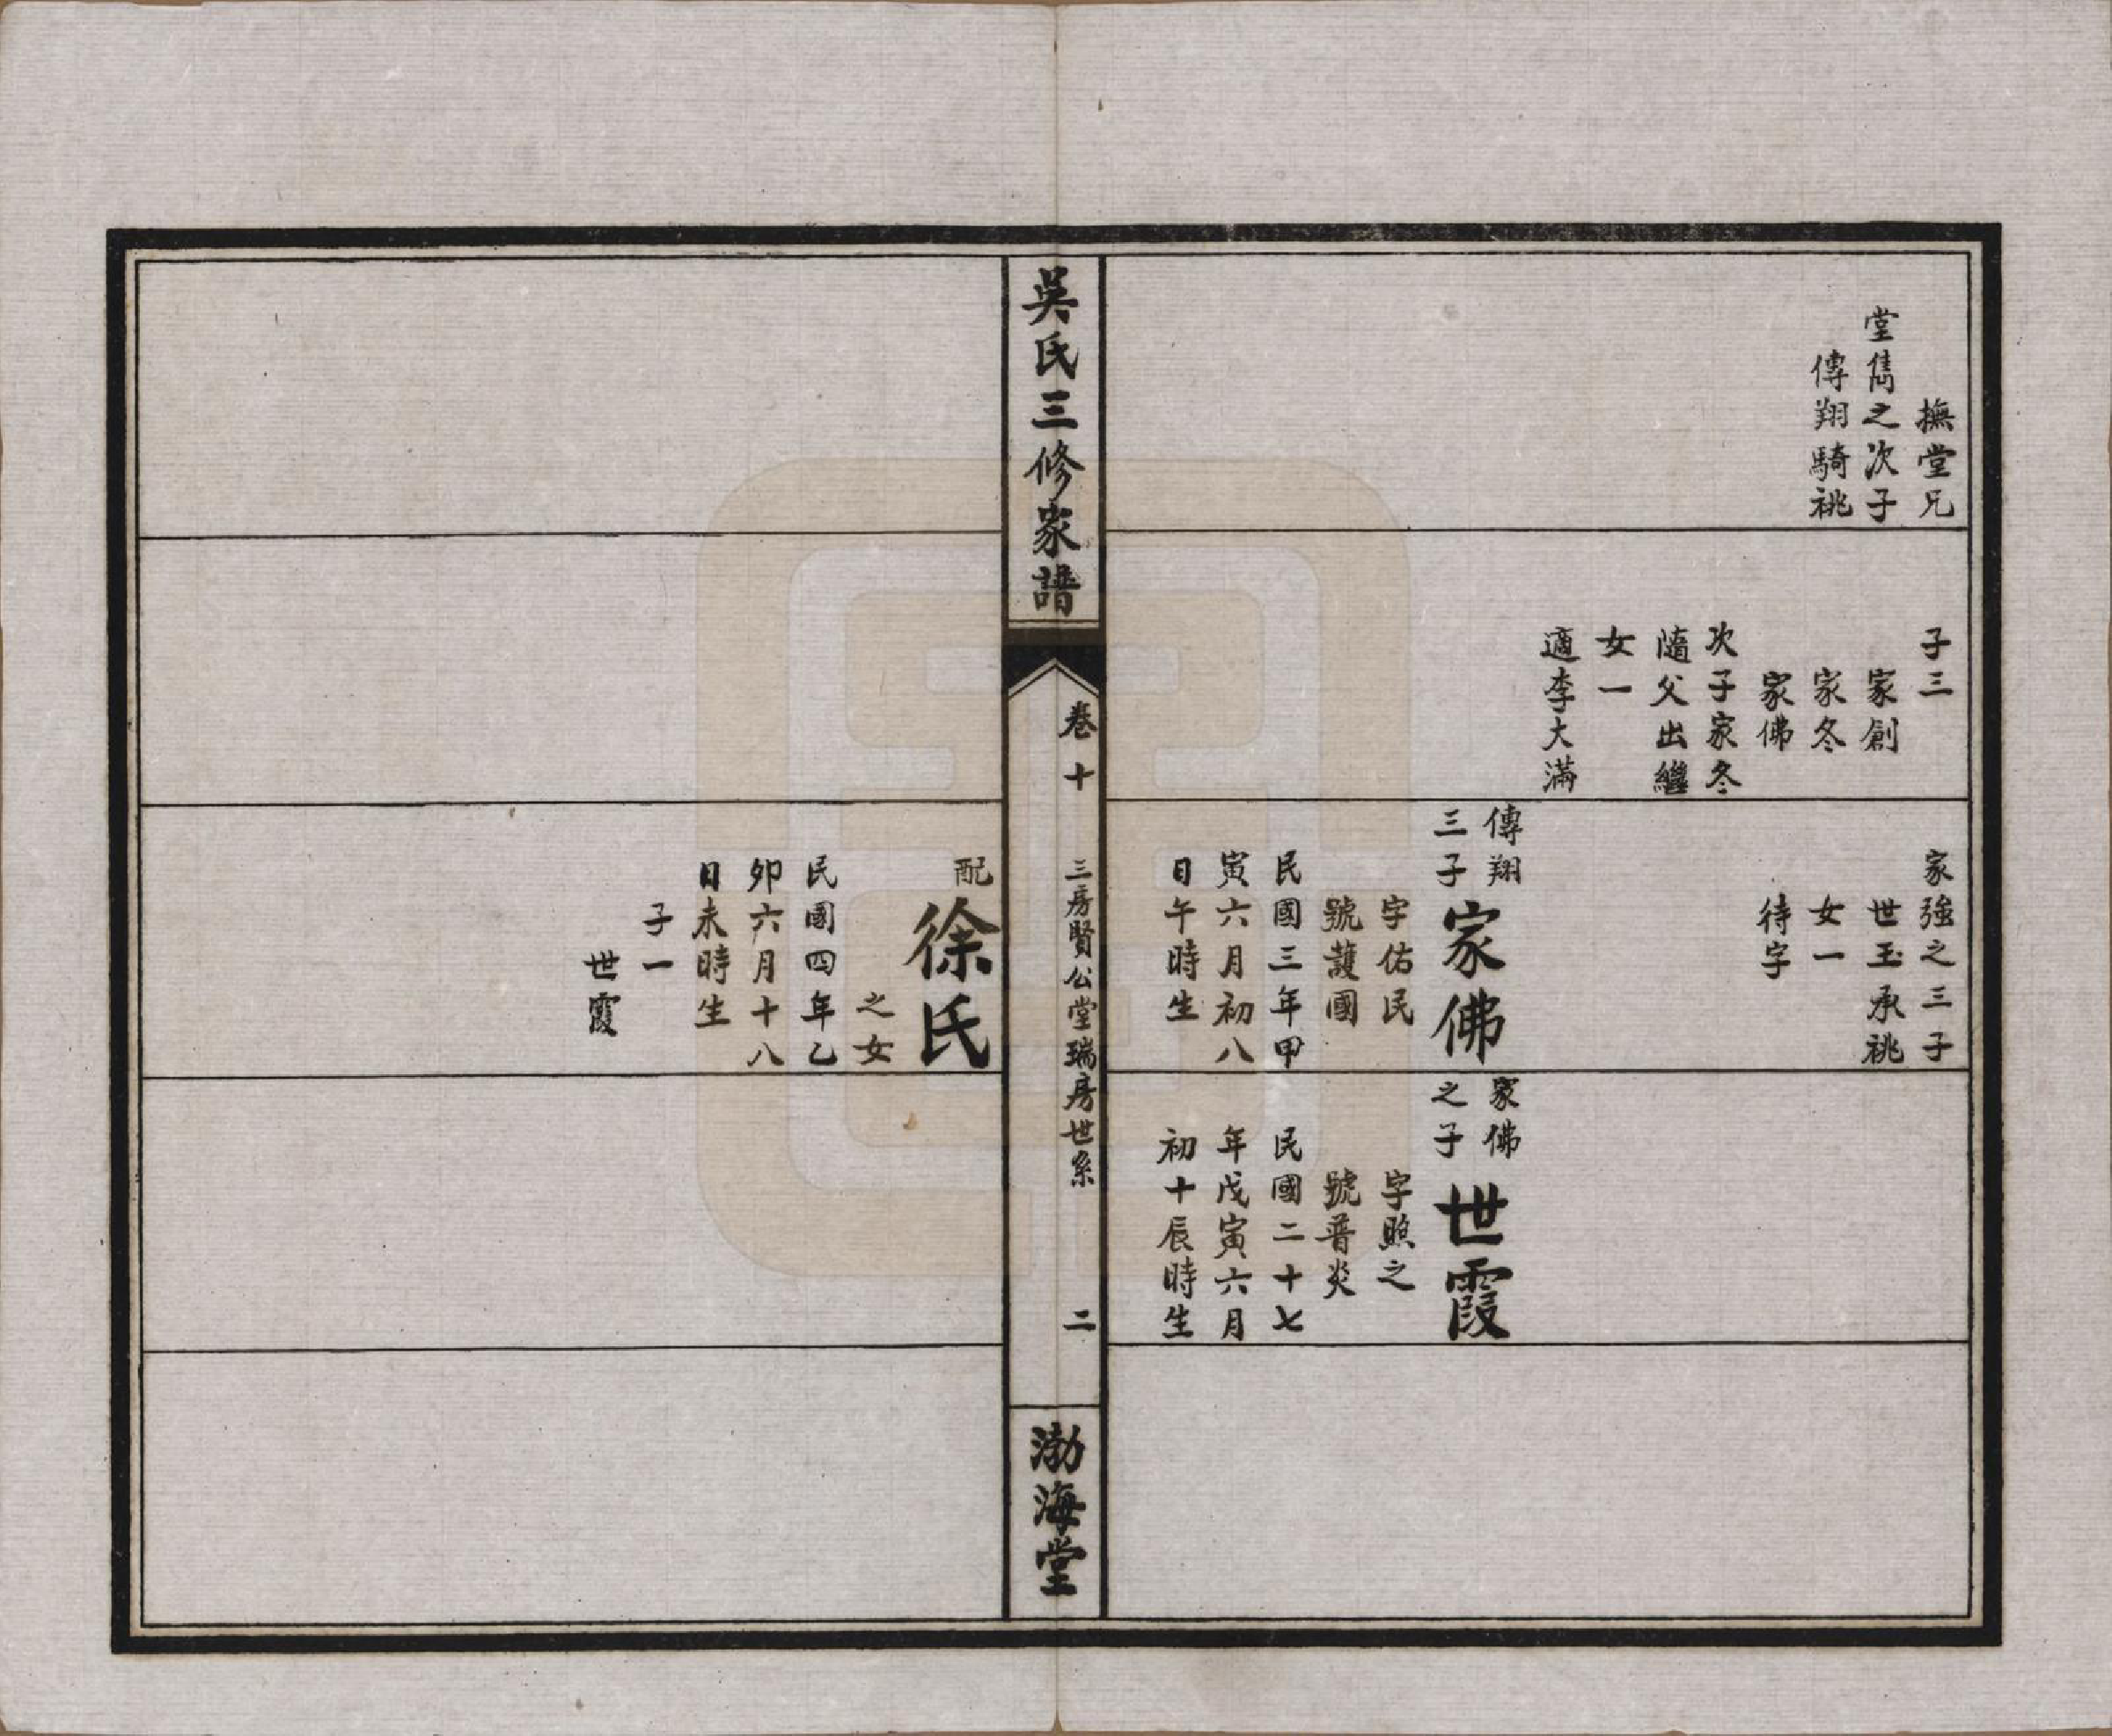 撫堂兄
堂雋之次子
傳翔騎祧
子三
家創
家冬
家佛
次子家冬
隨父出繼
女一
適李大滿
家強之三子
世玉承祧
女一
待字
傳翔
三子
家佛
字佑民
號護國
民國三年甲
寅六月初八
日午時生
家佛
之子
世霞
字照之
號普炎
民國二十七
年戊寅六月
初十辰時生
吳氏三修家譜
卷十
三房賢公堂瑞房世系
二
渤海堂
配
徐氏
之女
民國四年乙
卯六月十八
日未時生
子一
世霞